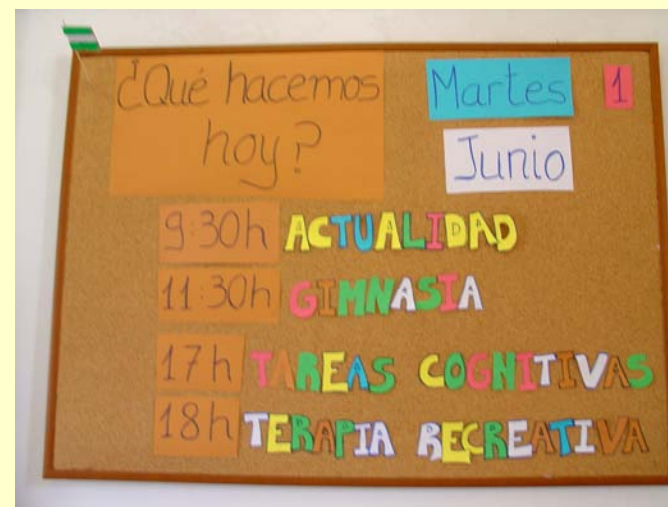 ¿Qué hacemos
hoy?
Martes 1
Junio
9:30h ACTUALIDAD
11:30h GIMNASIA
17h TAREAS COGNITIVAS
18h TERAPIA RECREATIVA